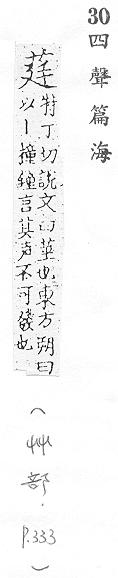 30四聲篇海
莛
特丁切說文曰莖也東方朔曰
以丨撞鐘言其声不可發也
(艸部.P.333)